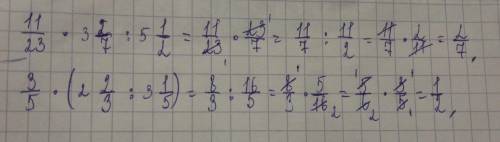 11/23 · 3 2/7 : 5 1/2 = 11/23 · 23/7 = 11/7 : 11/2 = 11/7 · 2/11 = 2/7,
3/5 · (2 2/3 : 3 1/5) = 8/3 : 16/5 = 8/3 · 5/16 = 5/6 · 3/5 = 1/2,